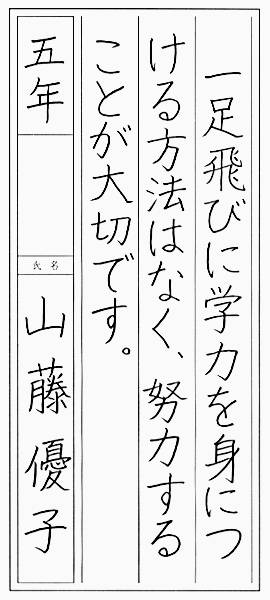 一足飛びに学力を身につ
ける方法はなく、努力する
ことが大切です。
五年
氏名
山藤優子